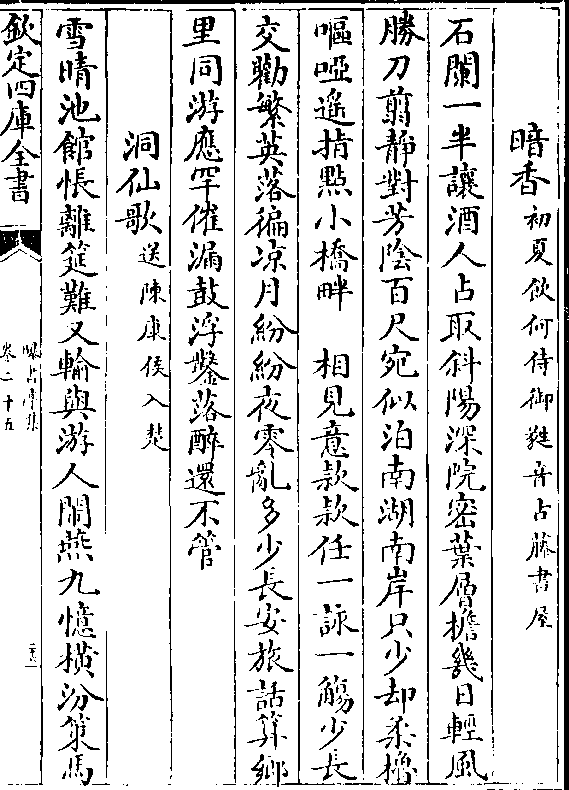 暗香 初夏飲何侍御蕤音古藤書屋
石闌一半讓酒人占取斜陽深院密葉層檐幾日輕風
勝刀翦靜對芳陰百尺宛似泊南湖南岸只少却柔櫓
嘔啞遙指點小橋畔　相見意款款任一詠一觴少長
交勸繁英落徧凉月紛紛夜零亂多少長安旅話算鄉
里同游應罕催漏鼓浮鑿落醉還不管
洞仙歌 送陳庫侯入楚
雪晴池館悵離筵難又輸與游人鬧燕九憶橫汾策馬
欽定四庫全書
曝書亭集
卷二十五